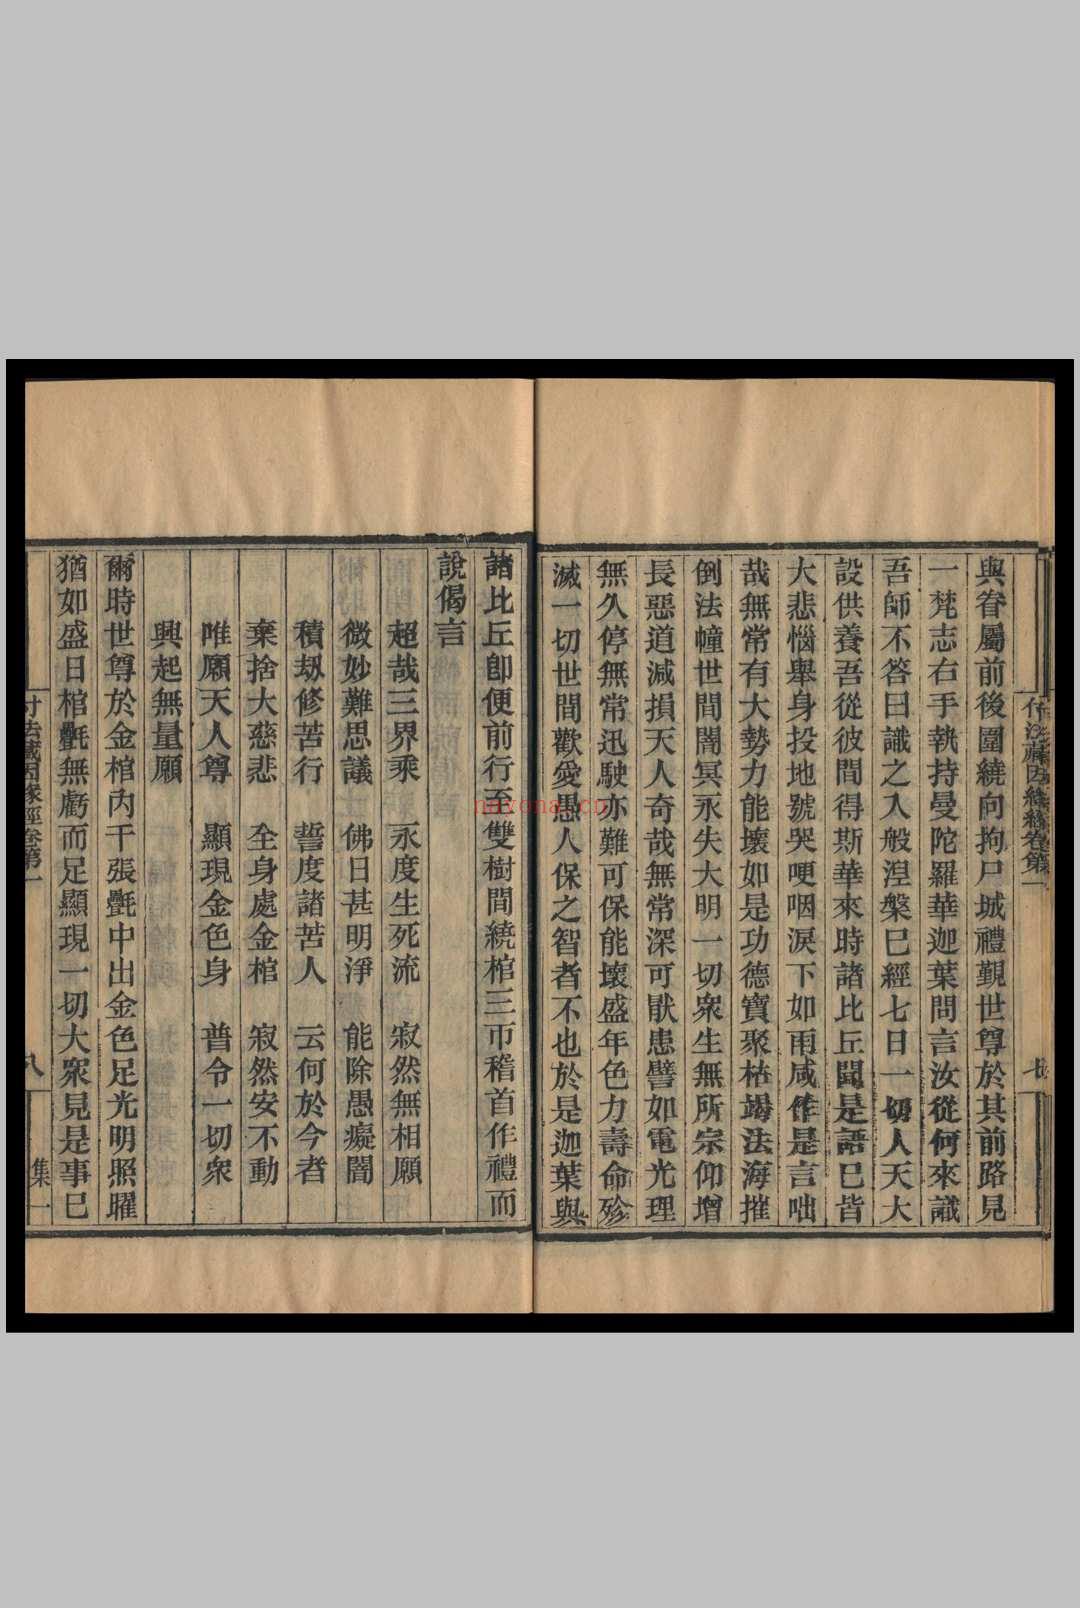 付法藏因緣經卷第一
七
與眷屬前後圍繞向拘尸城禮覲世尊於其前路見
一梵志右手執持曼陀羅華迦葉問言汝從何來識
吾師不答曰識之入般涅槃已經七日一切人天大
設供養吾從彼間得斯華來時諸比丘聞是語已皆
大悲惱舉身投地號哭哽咽淚下如雨咸作是言咄
哉無常有大勢力能壞如是功德寶聚枯竭法海摧
倒法幢世間闇冥永失大明一切眾生無所宗仰增
長惡道減損天人奇哉無常深可厭患譬如電光理
無久停無常迅駛亦難可保能壞盛年色力壽命殄
滅一切世間歡愛愚人保之智者不也於是迦葉與
諸比丘卽便前行至雙樹間繞棺三帀稽首作禮而
說偈言
超哉三界乘 永度生死流 寂然無相願
微妙難思議 佛日甚明淨 能除愚癡闇
積劫修苦行 誓度諸苦人 云何於今者
棄捨大慈悲 全身處金棺 寂然安不動
唯願天人尊 顯現金色身 普令一切眾
興起無量願
爾時世尊於金棺內千張㲲中出金色足光明照曜
猶如盛日棺㲲無虧而足顯現一切大眾見是事已
付法藏因緣經卷第一
八
集一
nayona.cn